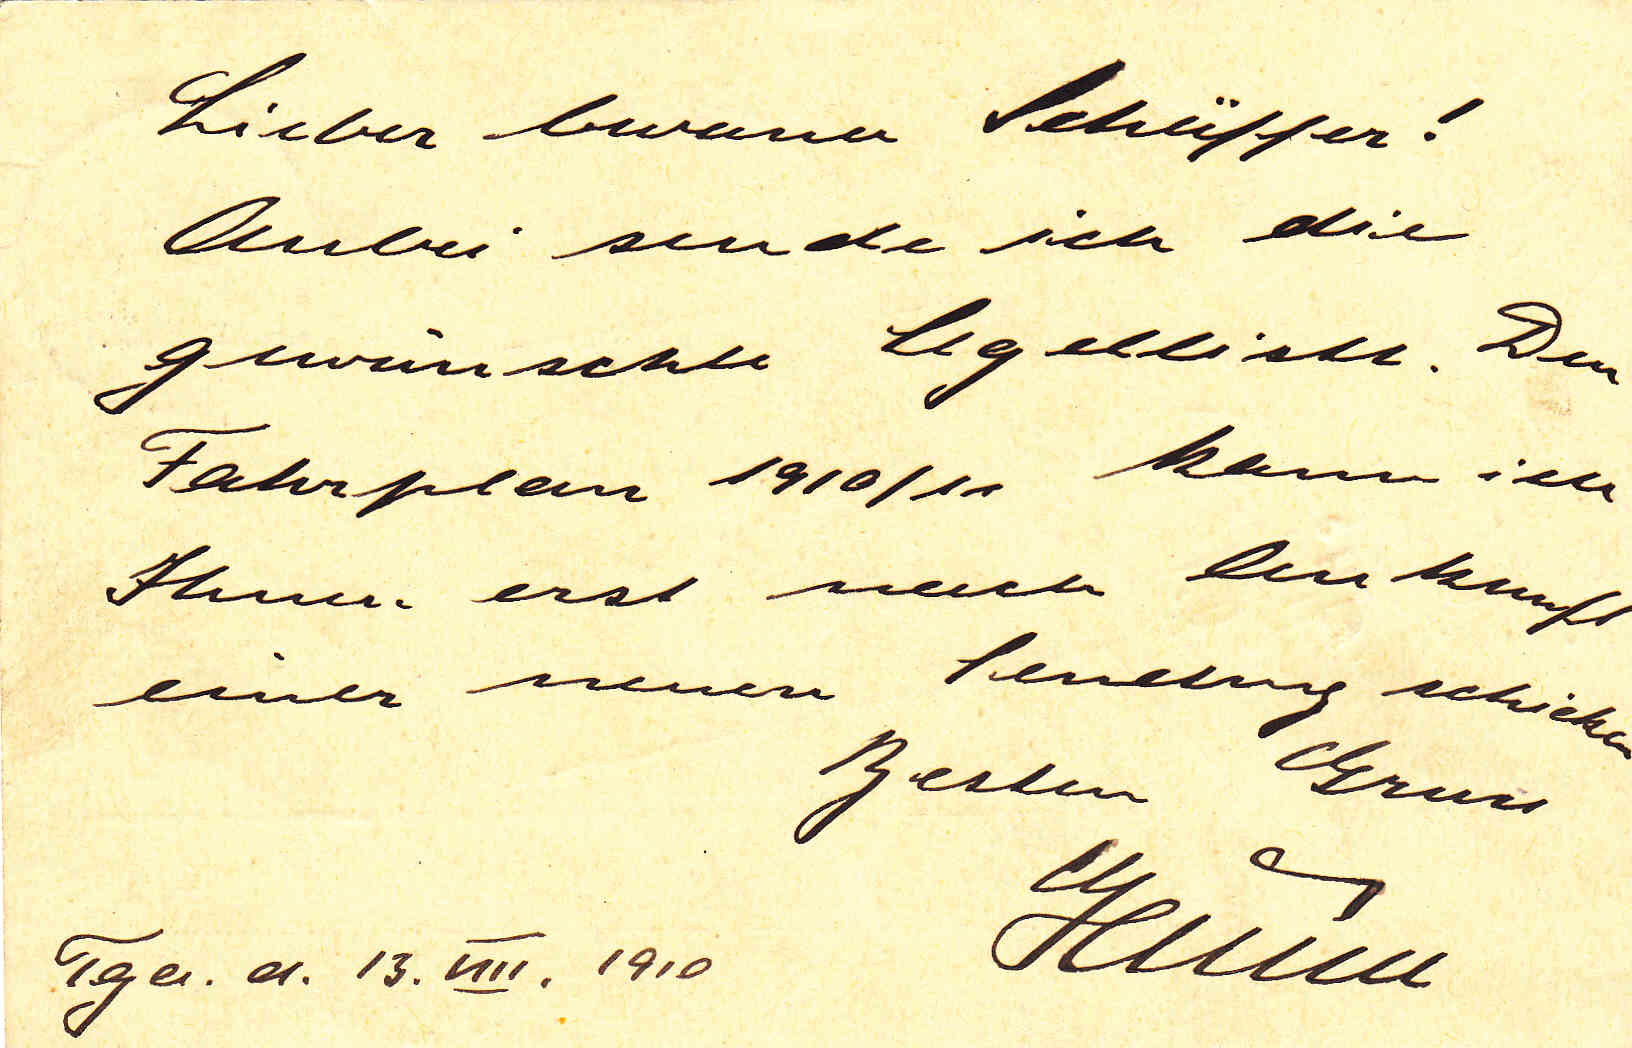 Lieber bwana Schäffer!
Anbei sende ich die
gewünschte Segelliste. Den
Fahrplan 1910/11 kann ich
Ihnen erst nach Ankunft
einer neuen Sendung schicken
Besten Gruss
Tga. d. 13. VIII. 1910